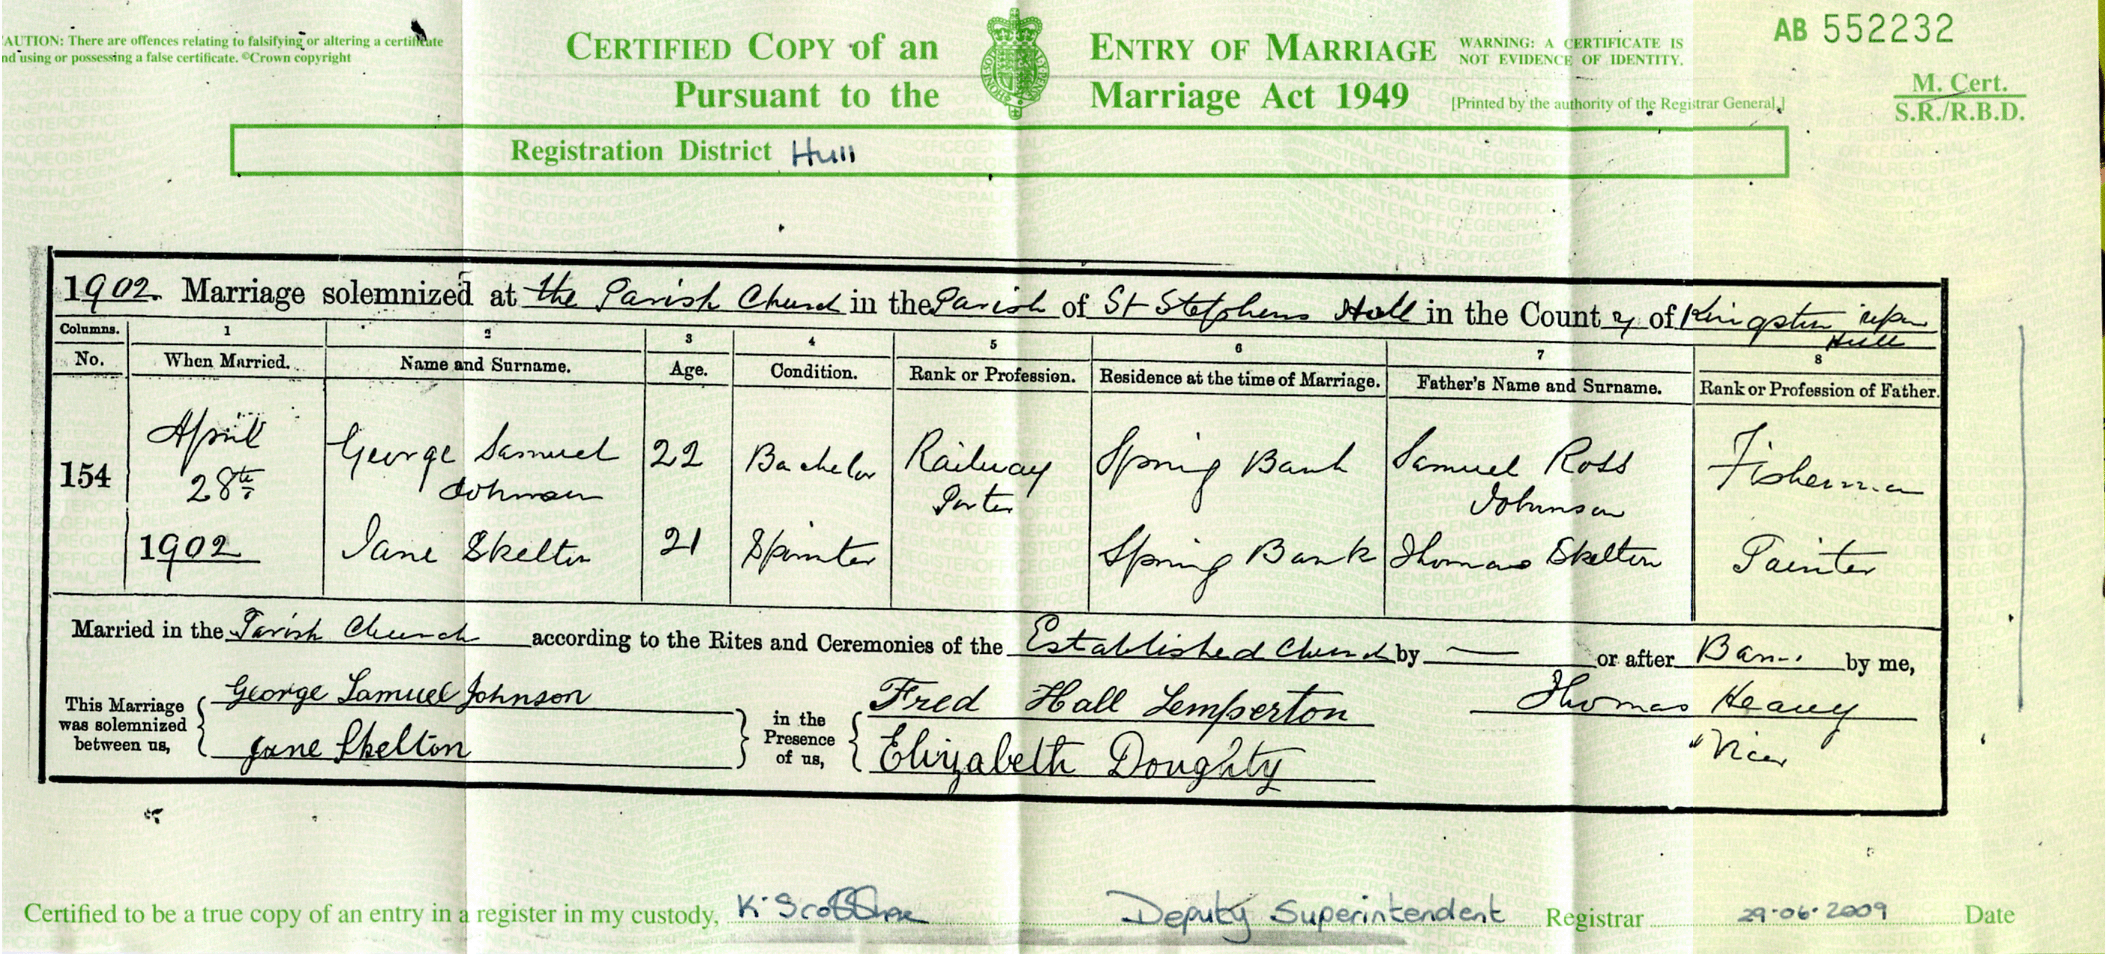 AUTION: There are offences relating to falsifying or altering a certificate
nd using or possessing a false certificate. ©Crown copyright
CERTIFIED COPY of an ENTRY OF MARRIAGE
Pursuant to the Marriage Act 1949
WARNING: A CERTIFICATE IS
NOT EVIDENCE OF IDENTITY.
[Printed by the authority of the Registrar General.]
AB 552232
M. Cert.
S.R./R.B.D.
Registration District Hull
1902. Marriage solemnized at the Parish Church in the Parish of St Stephens Hull in the County of Kingston upon
Hull
Columns. 1 2 3 4 5 6 7 8
No. When Married. Name and Surname. Age. Condition. Rank or Profession. Residence at the time of Marriage. Father's Name and Surname. Rank or Profession of Father.
154 April 28th 1902
George Samuel Johnson 22 Bachelor Railway Porter Spring Bank Samuel Ross Johnson Fisherman
Jane Skelton 21 Spinster Spring Bank Thomas Skelton Painter
Married in the Parish Church according to the Rites and Ceremonies of the Established Church by — or after Banns by me,
This Marriage was solemnized between us,
George Samuel Johnson
Jane Skelton
in the Presence of us,
Fred Hall Lemperton
Elizabeth Doughty
Thomas Heavy
Vicar
Certified to be a true copy of an entry in a register in my custody, K. Deputy Superintendent Registrar 29·06·2009 Date